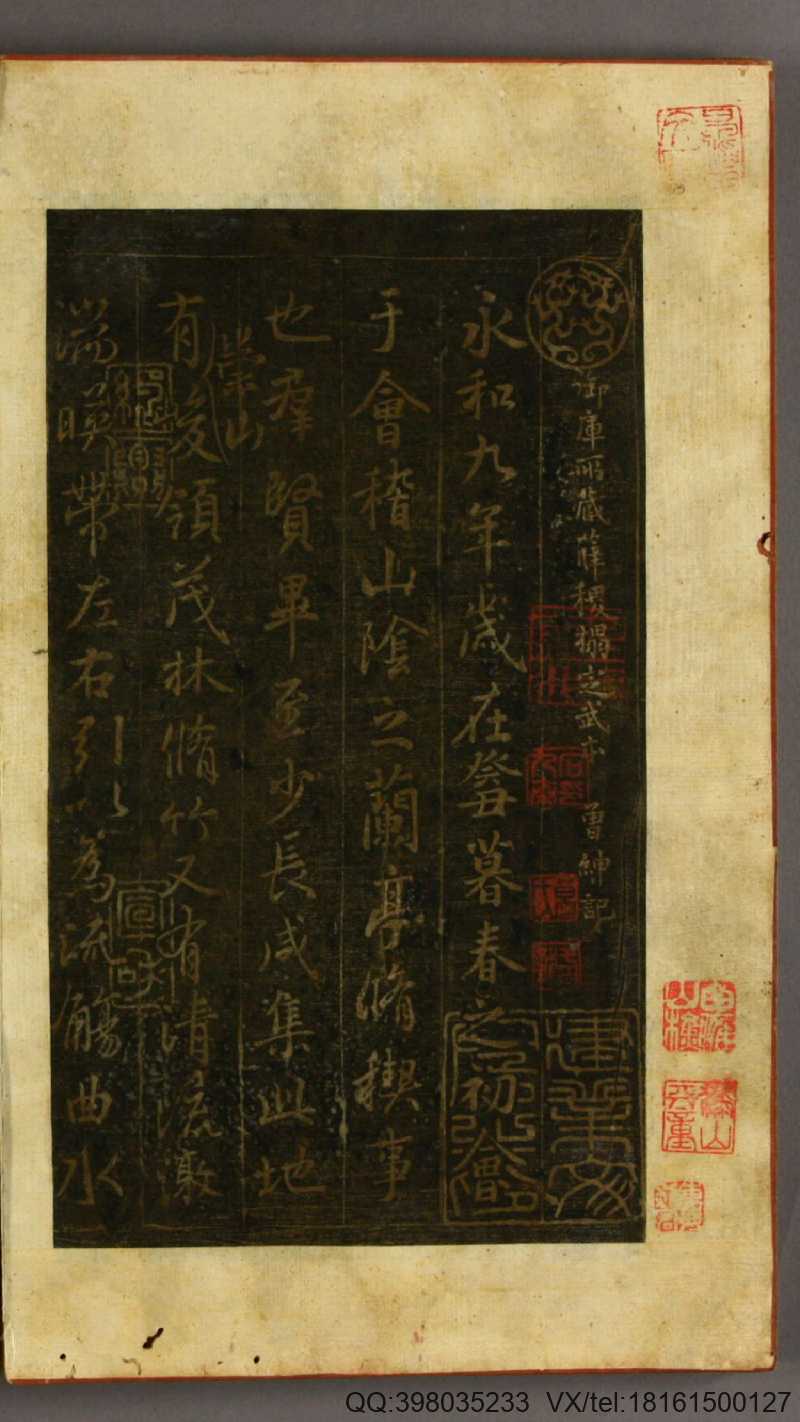 御庫所藏薛稷搨定武本 曾紳記
永和九年歲在癸暮春之初會
于會稽山陰之蘭亭脩稧事
也羣賢畢至少長咸集此地
崇山
有峻領茂林脩竹又有清流激
湍暎帶左右引以為流觴曲水
QQ:398035233 VX/tel:18161500127